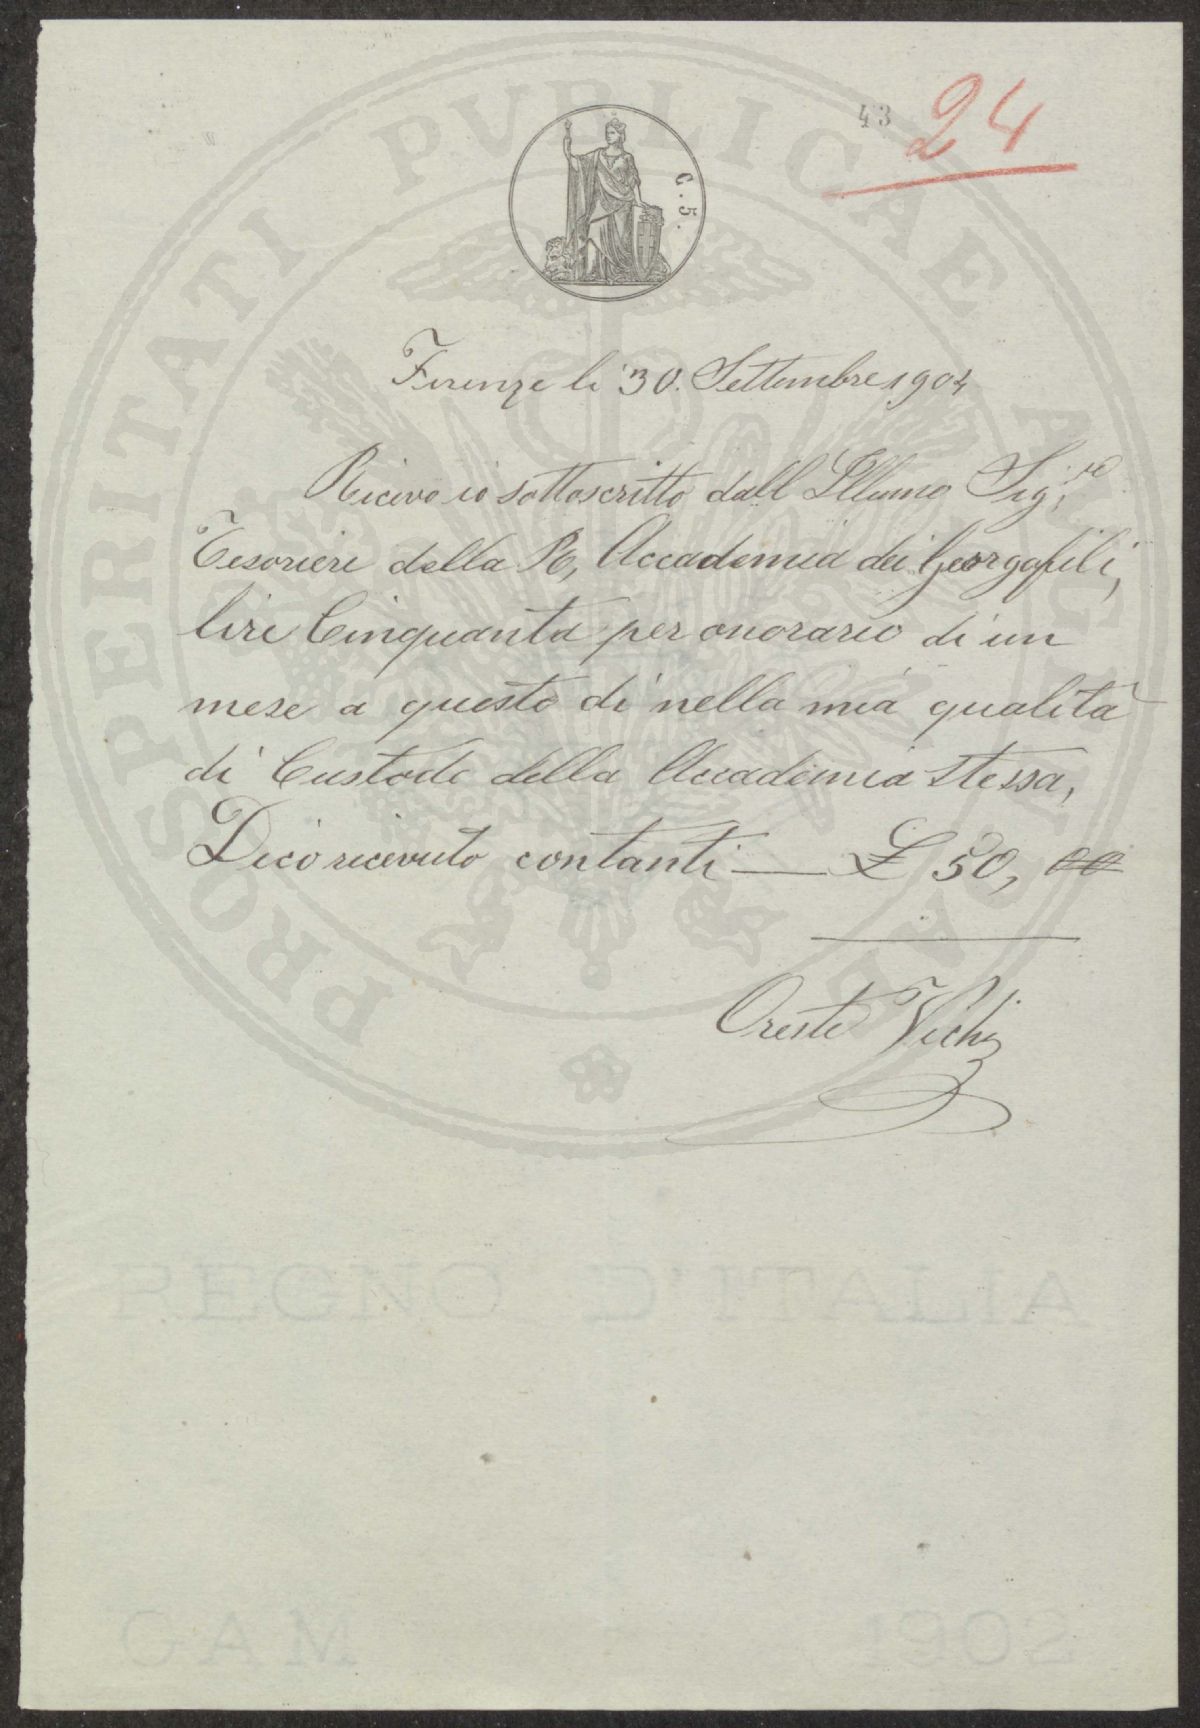 43 24
C. 5.
PROSPERITATI PVBLICAE AVGENDAE
Firenze li 30. Settembre 1904
Ricevo io sottoscritto dall Illumo Sig.re
Tesoriere della R, Accademia dei Georgofili,
lire Cinquanta per onorario di un
mese a questo dì nella mia qualità
di Custode della Accademia stessa,
Dico ricevuto contanti — £ 50, 00
Oreste Vichi
REGNO D'ITALIA
GAM 1902